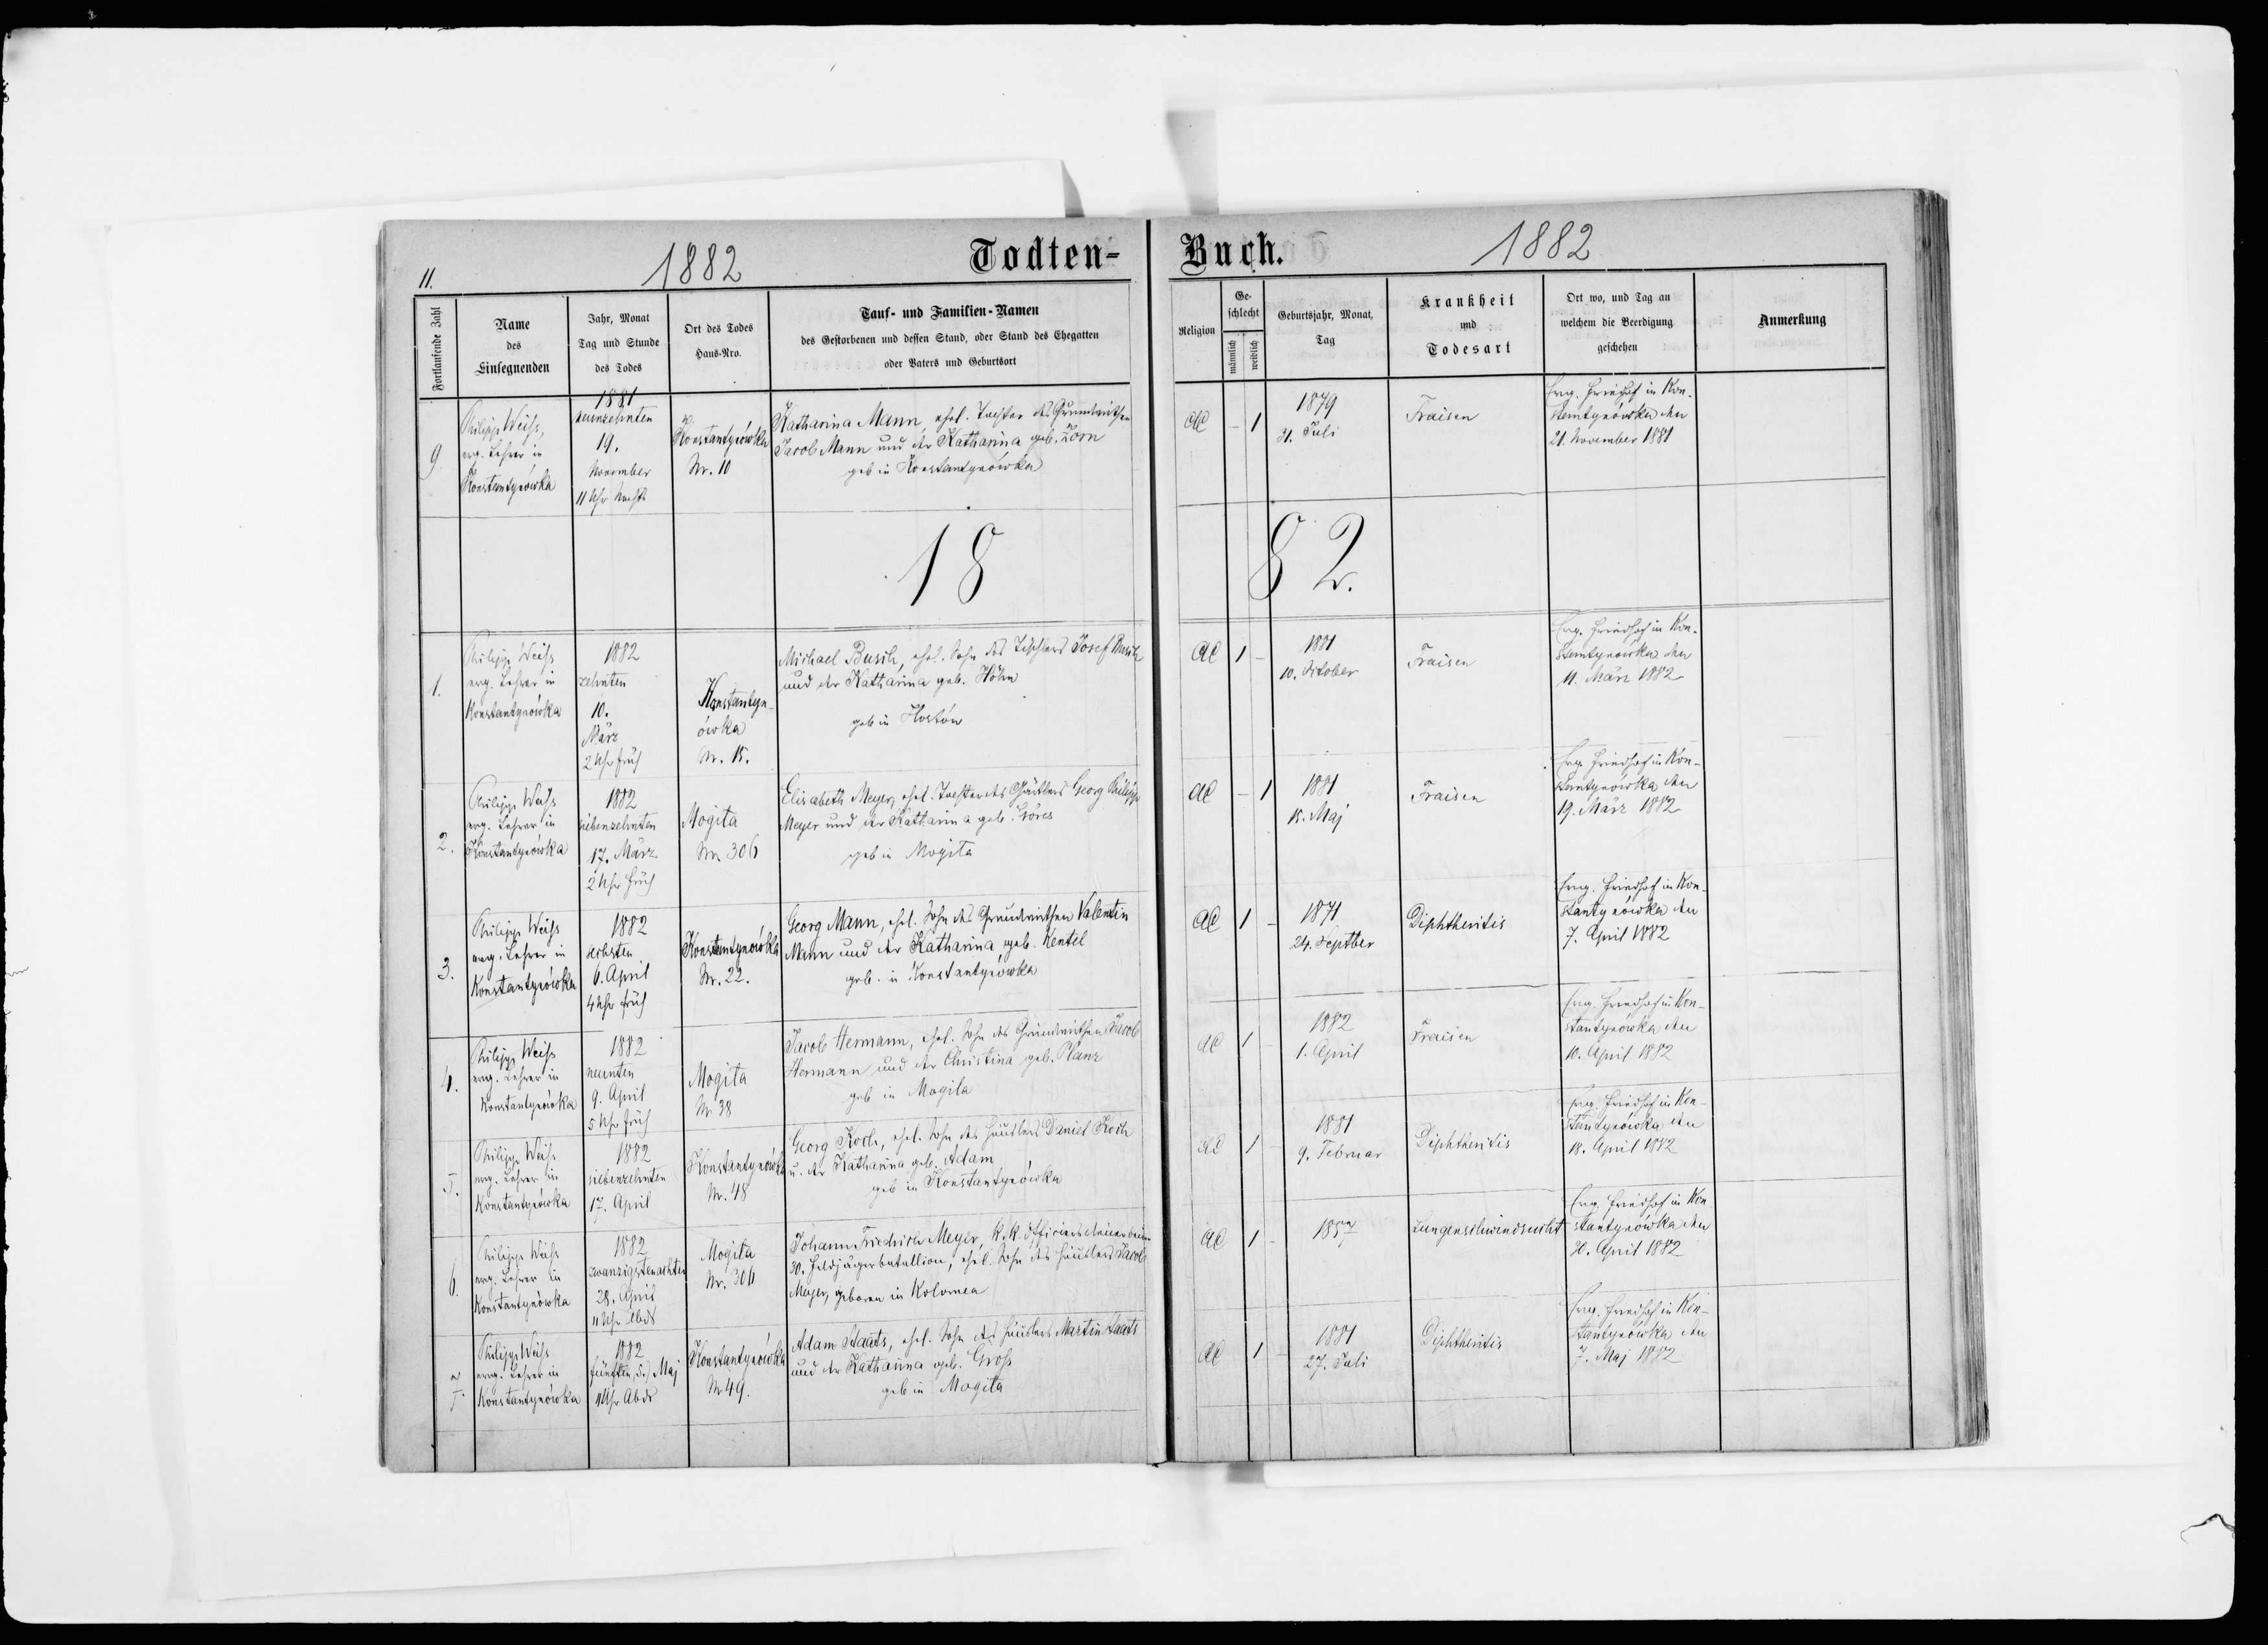 11.
1882
Todten-
Buch.
1882
Fortlaufende Zahl
Name
des
Einsegnenden
Jahr, Monat
Tag und Stunde
des Todes
Ort des Todes
Haus-Nro.
Tauf- und Familien-Namen
des Gestorbenen und dessen Stand, oder Stand des Ehegatten
oder Vaters und Geburtsort
Religion
Ge-
schlecht
männlich
weiblich
Geburtsjahr, Monat,
Tag
Krankheit
und
Todesart
Ort wo, und Tag an
welchem die Beerdigung
geschehen
Anmerkung
9.
Philipp Weiß,
evg. Lehrer in
Konstantynówka
1881
neunzehnten
19.
November
11 Uhr Nachts
Konstantynówka
Nr. 10
Katharina Mann, ehel. Tochter des Grundwirthen
Jacob Mann und der Katharina geb. Zorn
geb in Konstantynówka
AC
-
1
1879
31. Juli
Fraisen
Evg. Friedhof in Kon-
stantynówka den
21. November 1881
18
82.
1.
Philipp Weiß
evg. Lehrer in
Konstantynówka
1882
zehnten
10.
März
2 Uhr früh
Konstantyn-
ówka
Nr. 15.
Michael Busch, ehel. Sohn des Tischlers Josef Busch
und der Katharina geb. Höhn
geb in Hostów
AC
1
-
1881
10. October
Fraisen
Evg. Friedhof in Kon-
stantynówka den
11. März 1882
2.
Philipp Weiß
evg. Lehrer in
Konstantynówka
1882
siebenzehnten
17. März
2 Uhr früh
Mogila
Nr. 306
Elisabeth Meyer, ehel. Tochter des Georg Philipp
Meyer und der Katharina geb.
geb in Mogila
AC
-
1
1881
15. Maj
Fraisen
Evg. Friedhof in Kon-
stantynówka den
19. März 1882
3.
Philipp Weiß
evg. Lehrer in
Konstantynówka
1882
sechsten
6. April
4 Uhr früh
Konstantynówka
Nr. 22.
Georg Mann, ehel. Sohn des Grundwirthen Valentin
Mann und der Katharina geb. Kentel
geb. in Konstantynówka
AC
1
-
1871
24. Septber
Diphtheritis
Evg. Friedhof in Kon-
stantynówka den
7. April 1882
4.
Philipp Weiß
evg. Lehrer in
Konstantynówka
1882
neunten
9. April
5 Uhr früh
Mogila
Nr 38
Jacob Hermann, ehel. Sohn des Grundwirthen Jacob
Hermann und der Christina geb. Planz
geb in Mogila
AC
1
-
1882
1. April
Fraisen
Evg. Friedhof in Kon-
stantynówka den
10. April 1882
5.
Philipp Weiß
evg. Lehrer in
Konstantynówka
1882
siebenzehnten
17. April
Konstantynówka
Nr. 48
Georg Koch, ehel. Sohn des Häuslers Daniel Koch
u. der Katharina geb. Adam
geb in Konstantynówka
AC
1
-
1881
9. Februar
Diphtheritis
Evg. Friedhof in Kon-
stantynówka den
18. April 1882
6.
Philipp Weiß
evg. Lehrer in
Konstantynówka
1882
zwanzigstenachten
28. April
11 Uhr Abds
Mogila
Nr. 306
Johann Friedrich Meyer, k. k. Officiersdiener beim
30. Feldjägerbatallion, ehel. Sohn des Häuslers Jacob
Meyer, geboren in Kolomea
AC
1
-
1857
Lungenschwindsucht
Evg. Friedhof in Kon
stantynówka den
30. April 1882
7.
Philipp Weiß
evg. Lehrer in
Konstantynówka
1882
fünften, 5.) Maj
11 Uhr Abds
Konstantynówka
Nr 49.
Adam Staats, ehel. Sohn des Häuslers Martin Staats
und der Katharina geb. Groß
geb in Mogila
AC
1
-
1881
27. Juli
Diphtheritis
Evg. Friedhof in Kon-
stantynówka den
7. Maj 1882